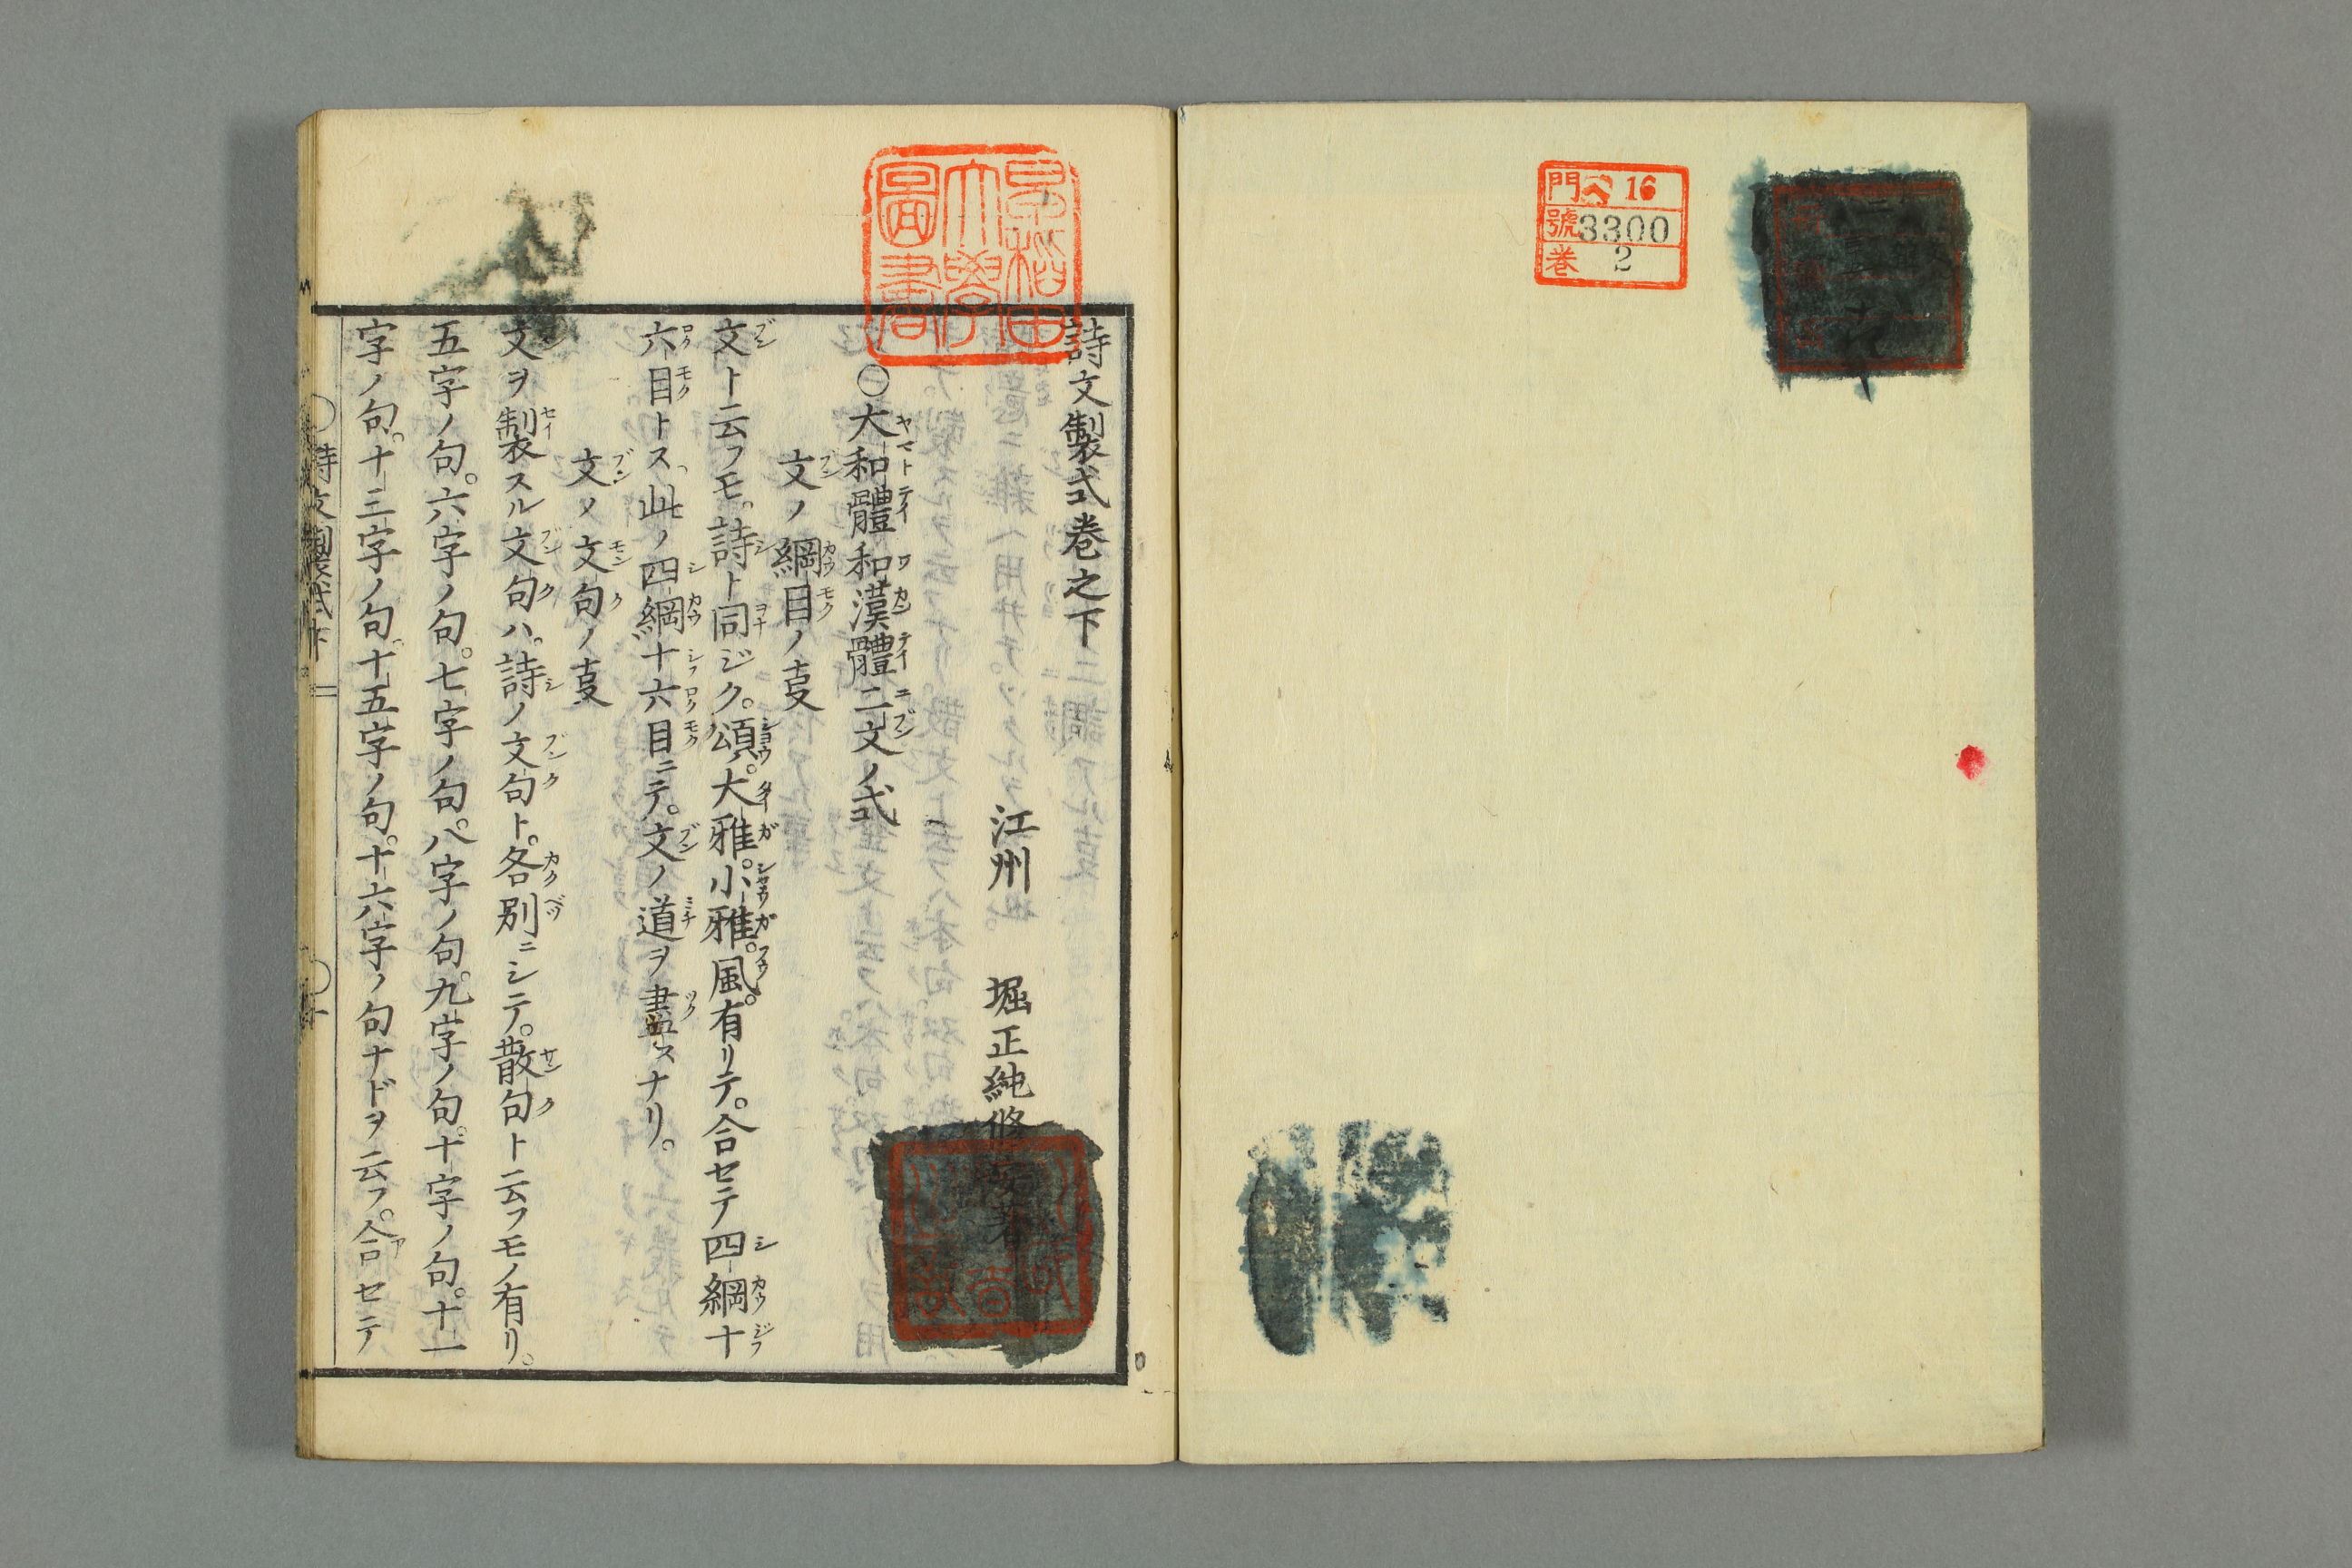 門 ヘ 16
號 3300
巻 2
早稲田大學圖書
詩文製式巻之下
江州 堀正純修
〇大和體和漢體二文ノ式
文ノ綱目ノ㕝
文ト云フモ。詩ト同ジク。頌。大雅。小雅。風。有リテ。合セテ四綱十
六目トス、此ノ四綱十六目ニテ。文ノ道ヲ盡スナリ。
文ノ文句ノ㕝
文ヲ製スル文句ハ。詩ノ文句ト。各別ニシテ。散句ト云フモノ有リ。
五字ノ句。六字ノ句。七字ノ句。八字ノ句。九字ノ句。十字ノ句。十一
字ノ句。十三字ノ句。十五字ノ句。十六字ノ句ナドヲ云フ。合セテ
詩文製式下